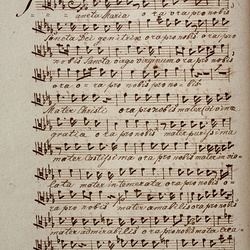 ancta Maria o ra ora pro nobis
Sancta Dei genitrix ora pro nobis ora pro
nobis Sancta virgo virginum o ra pro no
bis ora pro nobis pro no bis
Mater Christi ora pro nobis mater divinæ
gratiæ o ra pro nobis mater purissima
mater Castissima ora pro nobis mater in vio
lata mater intemerata ora pro nobis o
ra pro nobis mater amabilis ora pro nobis
mater admirabilis ora pro nobis mater crea